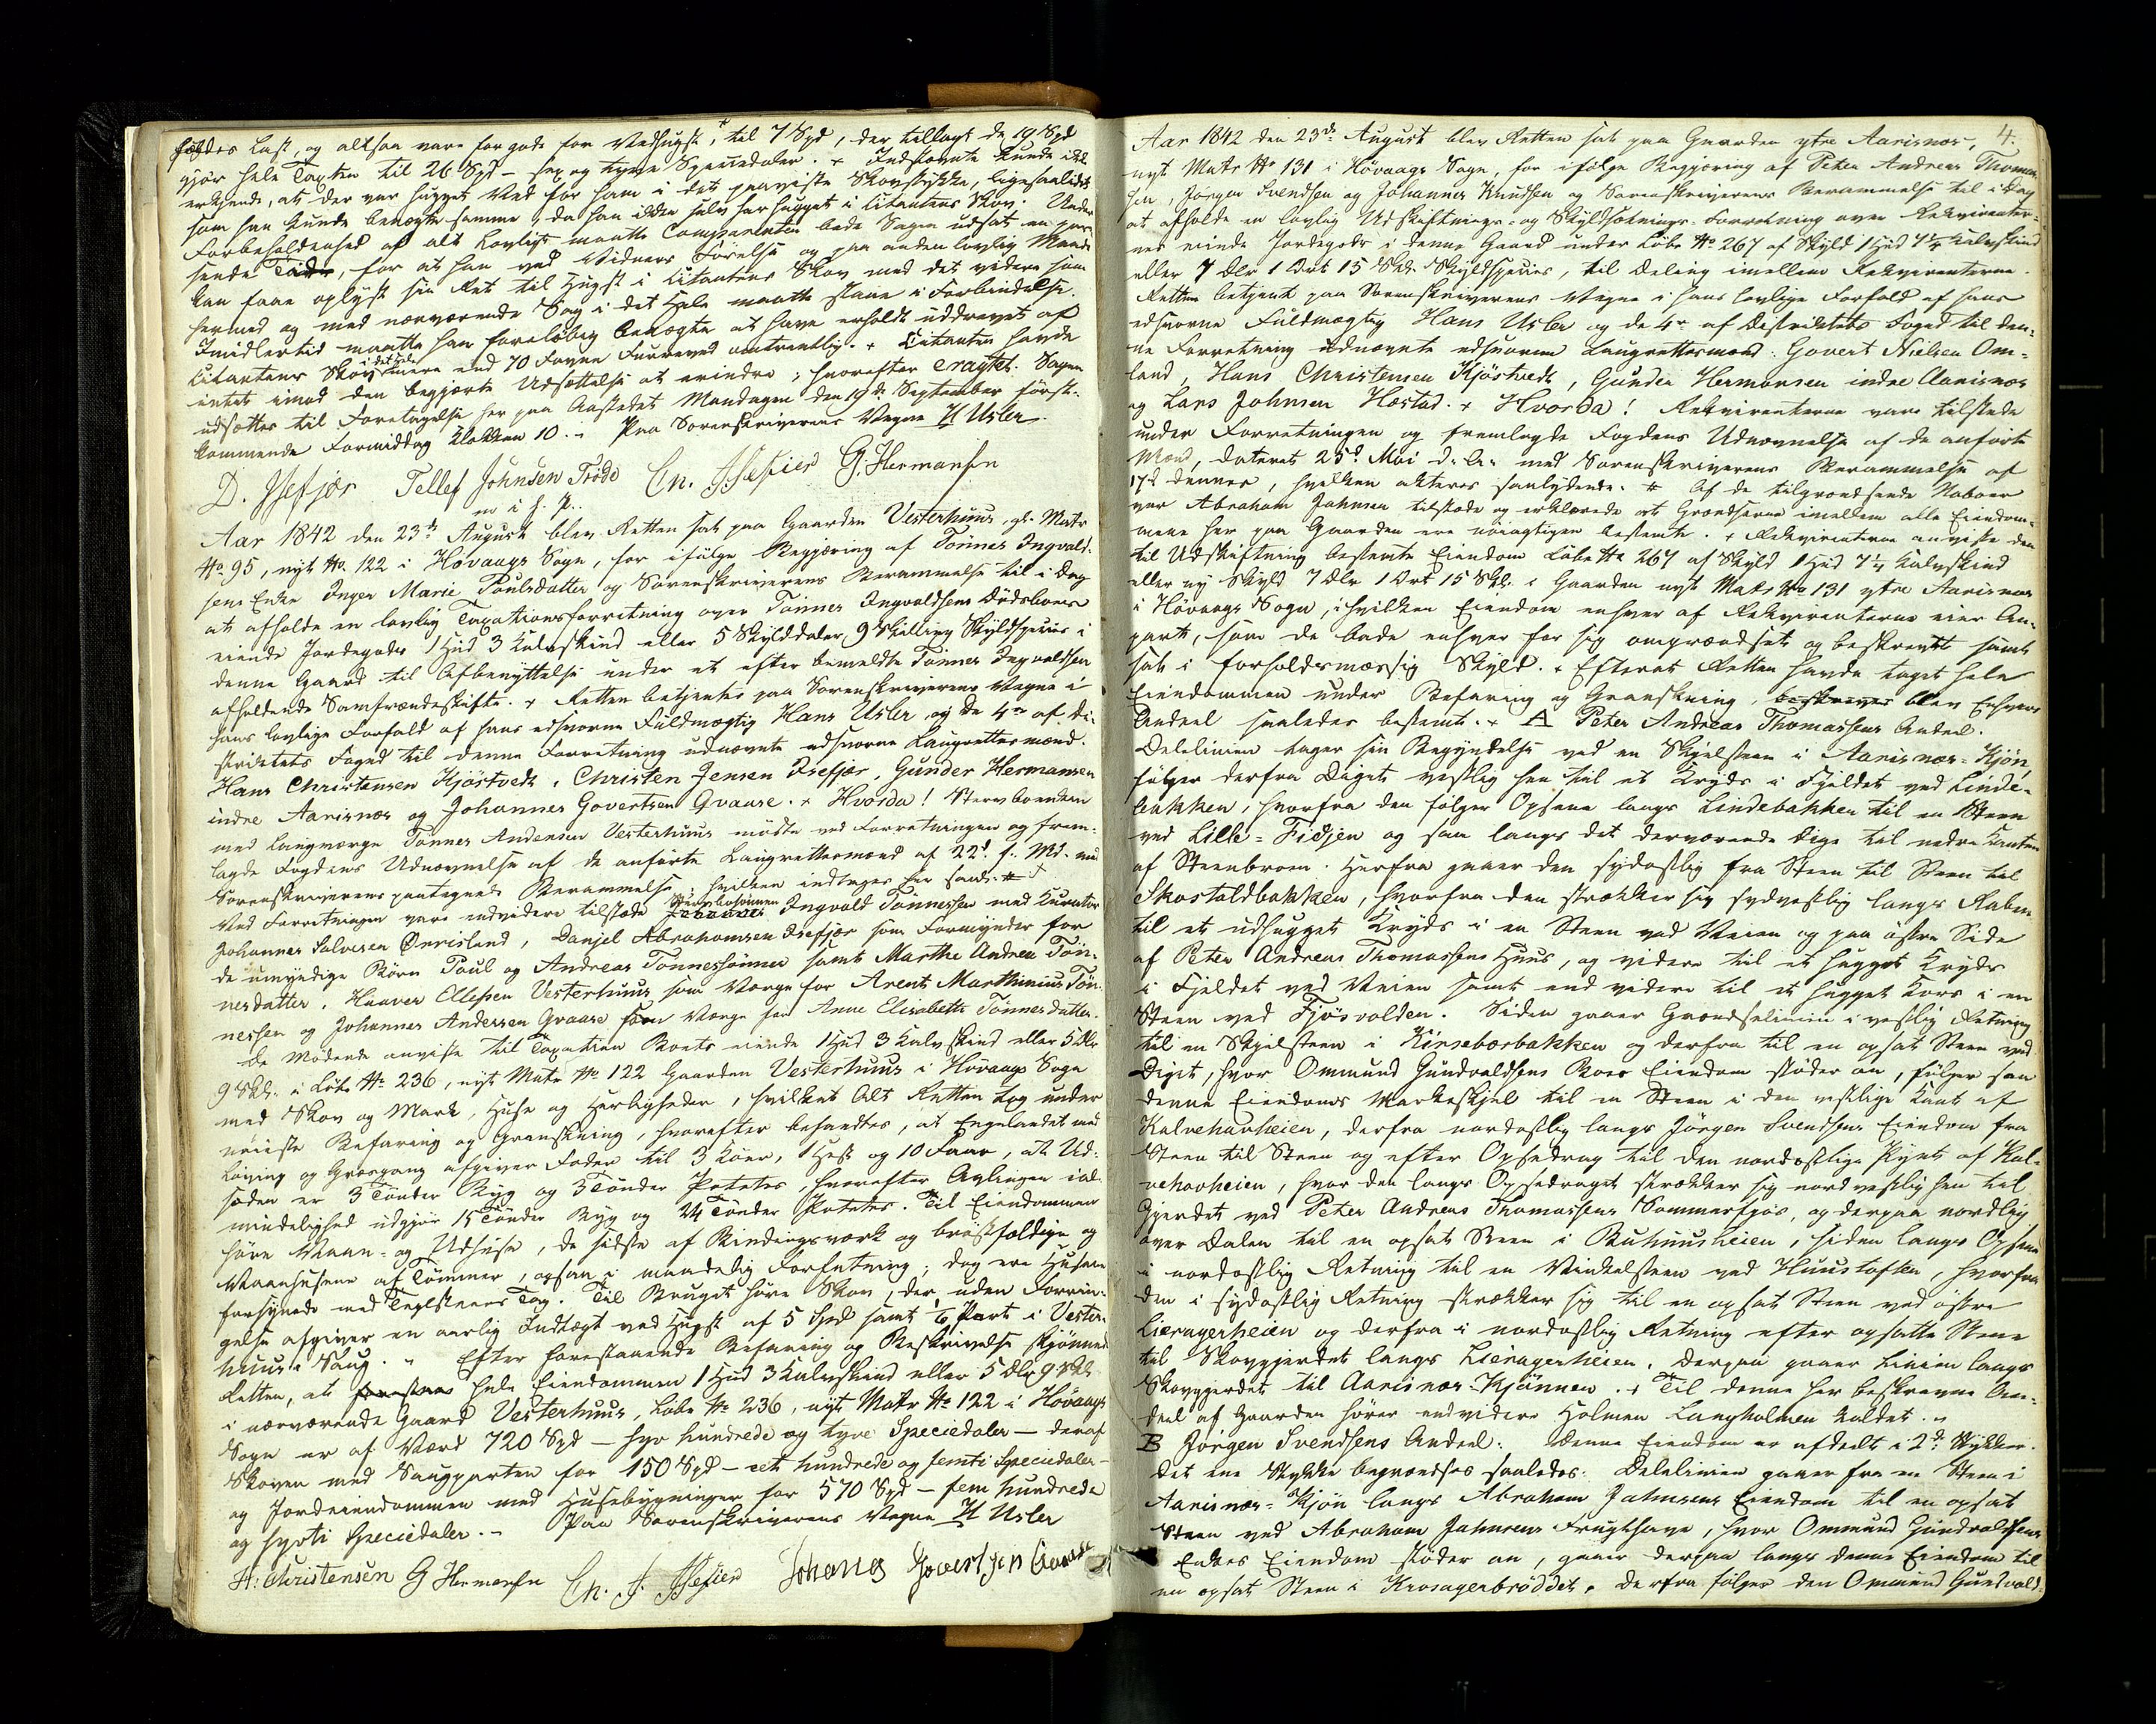 fuldes Last, og altsaa vare for gode for Vedhugst, til 7 Spd, der tillagt de 19 Spd
gjør hele Taxten til 26 Spd – sex og tyve Speciedaler. + Indstævnte kunde ikke
erkjende, at der var hugget Ved for ham i det paaviste Skovstykke, ligesaalidet
som han kunde benægte samme, da han ikke selv har hugget i Citantens Skov. Under
Forbeholdenhed af alt Lovligt maatte Comparenten bede Sagen udsat en pas-
sende Tid, for at han ved Vidners Førelse og paa anden lovlig Maade
kan faae oplyst sin Ret til Hugst i Citantens Skov med det videre som
hermed og med nærværende Sag i det Hele maatte staae i Forbindelse.
Imidlertid maatte han foreløbig benægte at have erholdt uddrevet af
Citantens Skov i det Hele mere end 70 Favne Furuved omtrentlig. + Citanten havde
intet imod den begjærte Udsættelse at erindre; hvorefter eragtet: Sagen
udsættes til Foretagelse her paa Aastedet Mandagen den 19de September først-
kommende Formiddag Klokken 10. – Paa Sorenskriverens Vegne H Usler
D. Isefjær Tellef Johnsen Trøde Cn. J. Isefier G. Hermansen
m i f. P.
Aar 1842 den 23de August blev Retten sat paa Gaarden Vesterhuus, gl. Matr
No 95, nyt No. 122 i Høvaags Sogn, for ifølge Begjæring af Tønnes Ingvald-
sens Enke Inger Marie Poulsdatter og Sorenskriverens Berammelse til i Dag
at afholde en lovlig Taxationsforretning over Tønnes Ingvaldsens Dødsboes
eiende Jordegods 1 Hud 3 Kalvskind eller 5 Skylddaler 9 Skilling Skyldspecies i
denne Gaard til Afbenyttelse under et efter bemeldte Tønnes Ingvaldsen
afholdende Samfrændeskifte. + Retten betjentes paa Sorenskriverens Vegne i
hans lovlige Forfald af hans edsvorne Fuldmægtig Hans Usler og de 4re af Di-
striktets Foged til denne Forretning udnævnte edsvorne Laugrettesmænd:
Hans Christensen Kjöstvedt, Christen Jensen Isefjær, Gunder Hermansen
indre Aarisnæs og Johannes Govertsen Qvaase. + Hvorda! Stervboenken
med Laugværge Tønnes Andersen Vesterhuus mødte ved Forretningen og frem-
lagde Fogdens Udnævnelse af de anførte Laugrettesmænd af 22d f. Md. med
Sorenskriverens paategnede Berammelse, hvilken indtages her saal.
Ved Forretningen vare endvidere tilstæde Stervbosønnen Ingvald Tønnessen med Kurator
Johannes Salvesen Ørrisland, Danjel Abrahamsen Isefjær som Formynder for
de umyndige Børn Poul og Andreas Tønnessønner samt Marthe Andrea Tøn-
nesdatter, Haaver Ellefsen Vesterhuus som Værge for Arent Marthinius Tøn-
nessen og Johannes Andersen Qvaase som Værge for Anne Elisabeth Tønnesdatter.
De Mødende anviste til Taxation Boets eiende 1 Hud 3 Kalvskind eller 5 Dlr
9 Skl. i Løbe No 236, nyt Matr No 122 Gaarden Vesterhuus i Høvaags Sogn
med Skov og Mark, Huse og Herligheder, hvilket Alt Retten tog under
nøieste Befaring og Granskning, hvorefter befandtes, at Engelandet med
Løving og Græsgang afgiver Foder til 3 Køer, 1 Hest og 10 Faar, at Ud-
sæden er 3 Tønder Byg og 3 Tønder Potetes, hvorefter Avlingen i al-
mindelighed udgjør 15 Tønder Byg og 24 Tønder Potetes. Til Eiendommen
høre Vaan- og Udhuse, de sidste af Bindingsværk og brøstfældige og
Vaanhusene af Tømmer, ogsaa i maadelig Forfatning, dog ere Husene
forsynede med Teglsteens Tag. Til Bruget hører Skov, der uden Forrin-
gelse afgiver en aarlig Indtægt ved Hugst af 5 Spd samt 1/6 Part i Vester-
huus Saug. – Efter forestaaende Befaring og Beskrivelse skjønnede
Retten, at hele Eiendommen 1 Hud 3 Kalvskind eller 5 Dlr 9 Skl
i nærværende Gaard Vesterhuus, Løbe No 236, nyt Matr No 122 i Høvaags
Sogn er af Værd 720 Spd – syv hundrede og tyve Speciedaler – deraf
Skoven med Saugparten for 150 Spd – eet hundrede og femti Speciedaler –
og Jordeiendommen med Husebygninger for 570 Spd – fem hundrede
og sytti Speciedaler. – Paa Sorenskriverens Vegne H Usler
H: Christensen G Hermansen Cn. J. Isefier Johanes Goversen Qvaase
4.
Aar 1842 den 23de August blev Retten sat paa Gaarden ytre Aarisnæs,
nyt Matr No 131 i Høvaags Sogn, for ifølge Begjæring af Peter Andreas Thomas-
sen, Jørgen Svendsen og Johannes Knudsen og Sorenskriverens Berammelse til i Dag
at afholde en lovlig Udskiftnings- og Skyldsætnings-Forretning over Rekvirenter-
nes eiende Jordegods i denne Gaard under Løbe No 267 af Skyld 1 Hud 7 1/4 Kalvskind
eller 7 Dlr 1 Ort 15 Skl. Skyldspecies, til Deling imellem Rekvirenterne.
Retten betjent paa Sorenskriverens Vegne i hans lovlige Forfald af hans
edsvorne Fuldmægtig Hans Usler og de 4re af Distriktets Foged til den-
ne Forretning udnævnte edsvorne Laugrettesmænd: Govert Nielsen Om-
land, Hans Christensen Kjöstvedt, Gunder Hermansen indre Aarisnæs
og Lars Johnsen Hæstad. + Hvorda! Rekvirenterne vare tilstede
under Forretningen og fremlagde Fogdens Udnævnelse af de anførte
Mænd, dateret 25d Mai d. A. med Sorenskriverens Berammelse af
17d dennes, hvilken akteres saalydende. * Af de tilgrændsende Naboer
var Abraham Jahnsen tilstæde og erklærede at Grændserne imellem alle Eiendom-
mene her paa Gaarden ere nøiagtigen bestemte. + Rekvirenterne anviste den
til Udskiftning bestemte Eiendom Løbe No 267 af Skyld 1 Hud 7 1/4 Kalvskind
eller ny Skyld 7 Dlr 1 Ort 15 Skl. i Gaarden nyt Matr No 131 ytre Aarisnæs
i Høvaags Sogn, i hvilken Eiendom enhver af Rekvirenterne eier An-
part, som de bade enhver for sig omgrændset og beskrevet samt
sat i forholdsmæssig Skyld. + Efterat Retten havde taget hele
Eiendommen under Befaring og Granskning, beskrives blev Enhvers
Andeel saaledes bestemt. + A Peter Andreas Thomassens Andeel.
Delelinien tager sin Begyndelse ved en Skjelsteen i Aarisnæs-Kjön,
følger derfra Diget vestlig hen til et Kryds i Fjeldet ved Linde-
bakken, hvorfra den følger Opsene langs Lindebakken til en Steen
ved Lille-Fidjen og saa langs det derværende Dige til nedre Kanten
af Steenbroen. Herfra gaaer den sydostlig fra Steen til Steen til
Skostoldbakken, hvorfra den strækker sig sydvestlig langs Raben
til et udhugget Kryds i en Steen ved Veien og paa østre Side
af Peter Andreas Thomassens Huus, og videre til et hugget Kryds
i Fjeldet ved Veien samt end videre til et hugget Kors i en
Steen ved Fjøsvolden. Siden gaaer Grændselinien i vestlig Retning
til en Skjelsteen i Kinsebærbakken og derfra til en opsat Steen ved
Diget, hvor Ommund Gundvaldsens Boes Eiendom støder an, følger saa
denne Eiendoms Markeskjel til en Steen i den vestlige Kant af
Kalvehavheien, derfra nordostlig langs Jørgen Svendsens Eiendom fra
Steen til Steen og efter Opsedrag til den nordostlige Pynt af Kal-
vehavheien, hvor den langs Opsedraget strækker sig nordvestlig hen til
Gjerdet ved Peter Andreas Thomassens Sommerfjøs, og derpaa nordlig
over Dalen til en opsat Steen i Buhuusheien, siden langs Opsene
i nordostlig Retning til en Vinkelsteen ved Huustoften, hvorfra
den i sydostlig Retning strækker sig til en opsat Steen ved østre
Lieragerheien og derfra i nordostlig Retning efter opsatte Stene
til Skovgjerdet langs Lieragerheien. Derpaa gaaer Linien langs
Skovgjerdet til Aarisnæs-Kjönnen. + Til denne her beskrevne An-
deel af Gaarden hører endvidere Holmen Langholmen kaldet. –
B Jørgen Svendsens Andeel: Denne Eiendom er afdeelt i 2de Stykker.
Det ene Stykke begrændses saaledes: Delelinien gaaer fra en Steen i
Aarisnæs-Kjön langs Abraham Jahnsens Eiendom til en opsat
Steen ved Abraham Jahnsens Frugthave, hvor Ommund Gundvaldsens
Enkes Eiendom støder an, gaaer derpaa langs denne Eiendom til
en opsat Steen i Krosagerbröddet. Derfra følger den Ommund Gundvald-